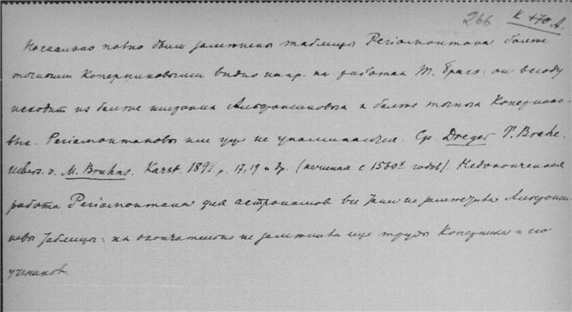 266 к 470 А.
Насколько полно были заменены таблицы Региомонтана более
точными Коперниковыми видно напр. на работах Т. Браге: он всюду
исходит из более Альфонсиновых и более точных Коперника-
вых. Региомонтановы им уж не упоминаются. Ср. Dreyer T. Brahe.
Übers. v. M. Bruhns. Karls. 1894, p. 17, 19 и др. (начиная с 1560х годов). Неоконченная
работа Региомонтана для астрономов все заменила Альфонси-
новы таблицы: но окончательно не заменила еще труды Коперника и его
учеников.